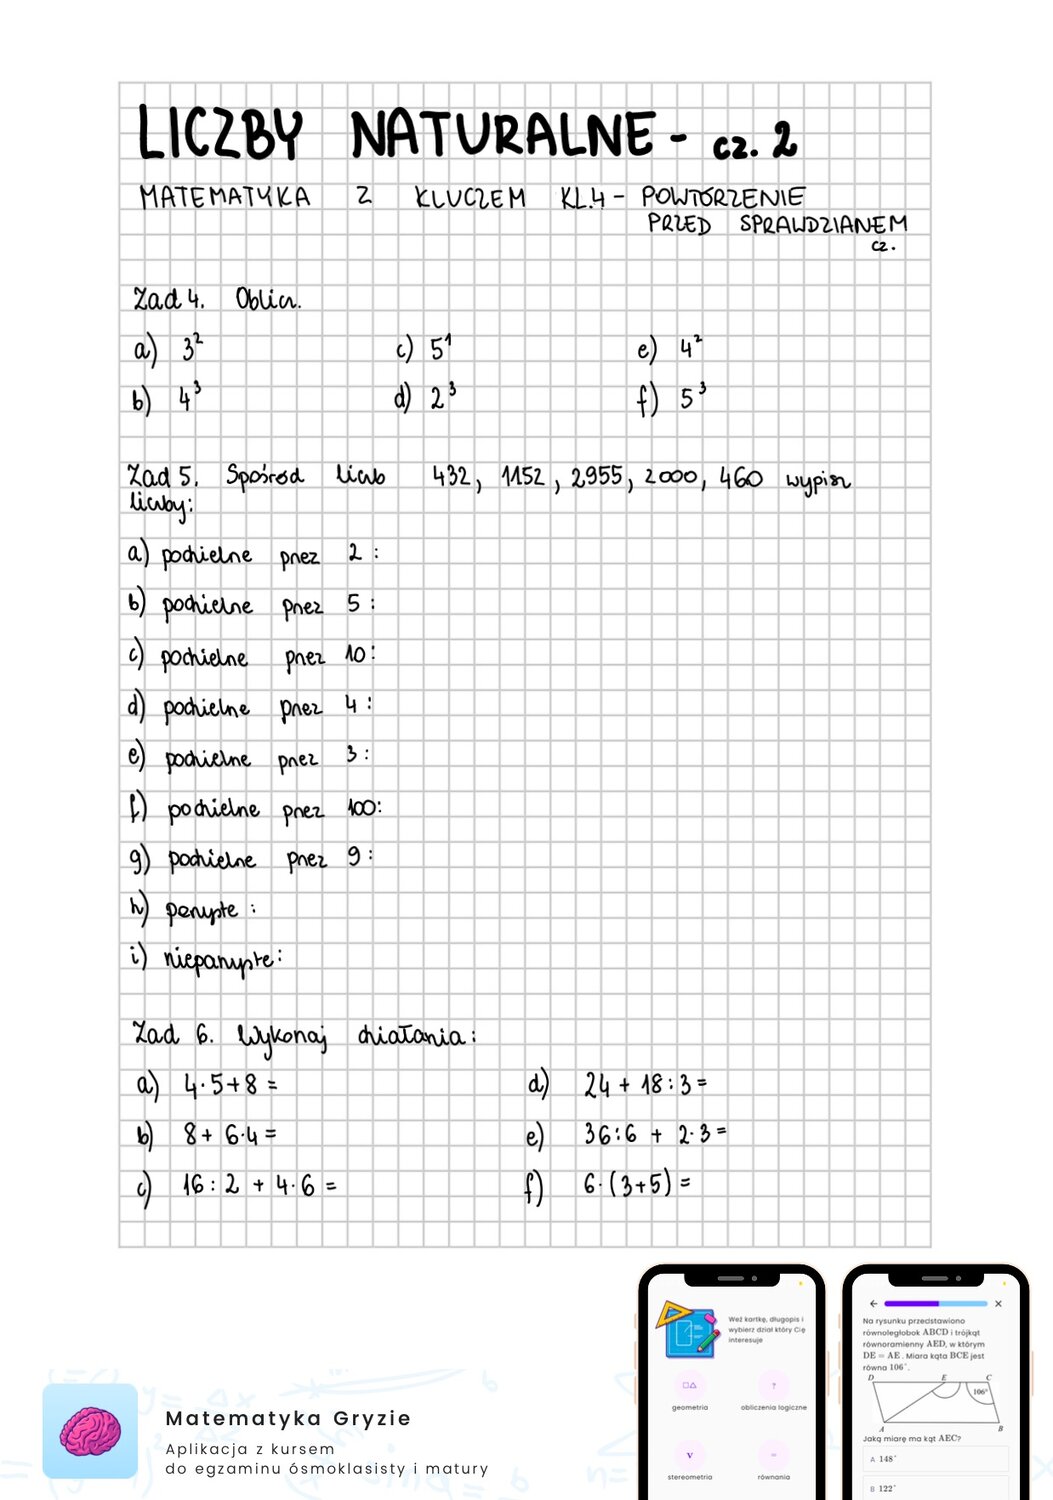 LICZBY NATURALNE - cz. 2
MATEMATYKA Z KLUCZEM KL.4 - POWTÓRZENIE
PRZED SPRAWDZIANEM
cz.
Zad 4. Oblicz.
a) 3² c) 5¹ e) 4²
b) 4³ d) 2³ f) 5³
Zad 5. Spośród liczb 432, 1152, 2955, 2000, 460 wypisz
liczby:
a) podzielne przez 2 :
b) podzielne przez 5 :
c) podzielne przez 10:
d) podzielne przez 4 :
e) podzielne przez 3 :
f) podzielne przez 100:
g) podzielne przez 9 :
h) parzyste :
i) nieparzyste:
Zad 6. Wykonaj działania:
a) 4·5+8 = d) 24 + 18:3 =
b) 8+ 6·4 = e) 36:6 + 2·3 =
c) 16:2 + 4·6 = f) 6·(3+5) =
Matematyka Gryzie
Aplikacja z kursem
do egzaminu ósmoklasisty i matury
Weź kartkę, długopis i
wybierz dział który Cię
interesuje
geometria
obliczenia logiczne
stereometria
równania
Na rysunku przedstawiono
równoległobok ABCD i trójkąt
równoramienny AED, w którym
DE = AE. Miara kąta BCE jest
równa 106°.
D E C
106°
A B
Jaką miarę ma kąt AEC?
A 148°
B 122°